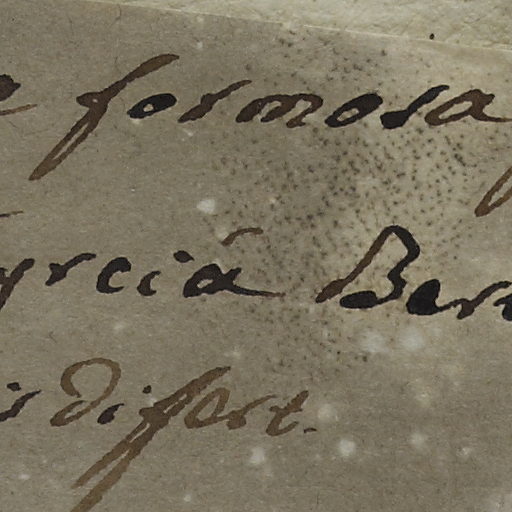 formosa
yrciâ Ber
is differt.